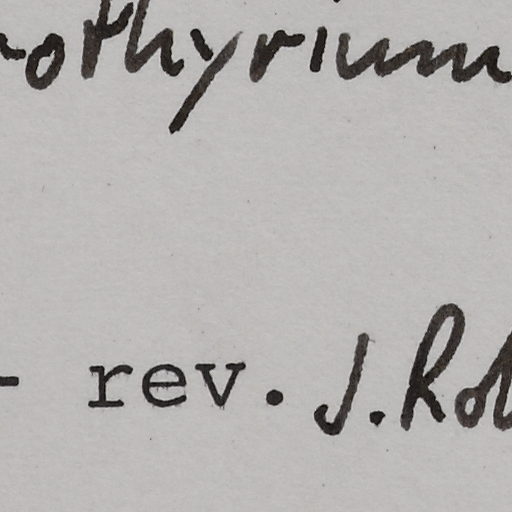 othyrium
- rev. J. Rob